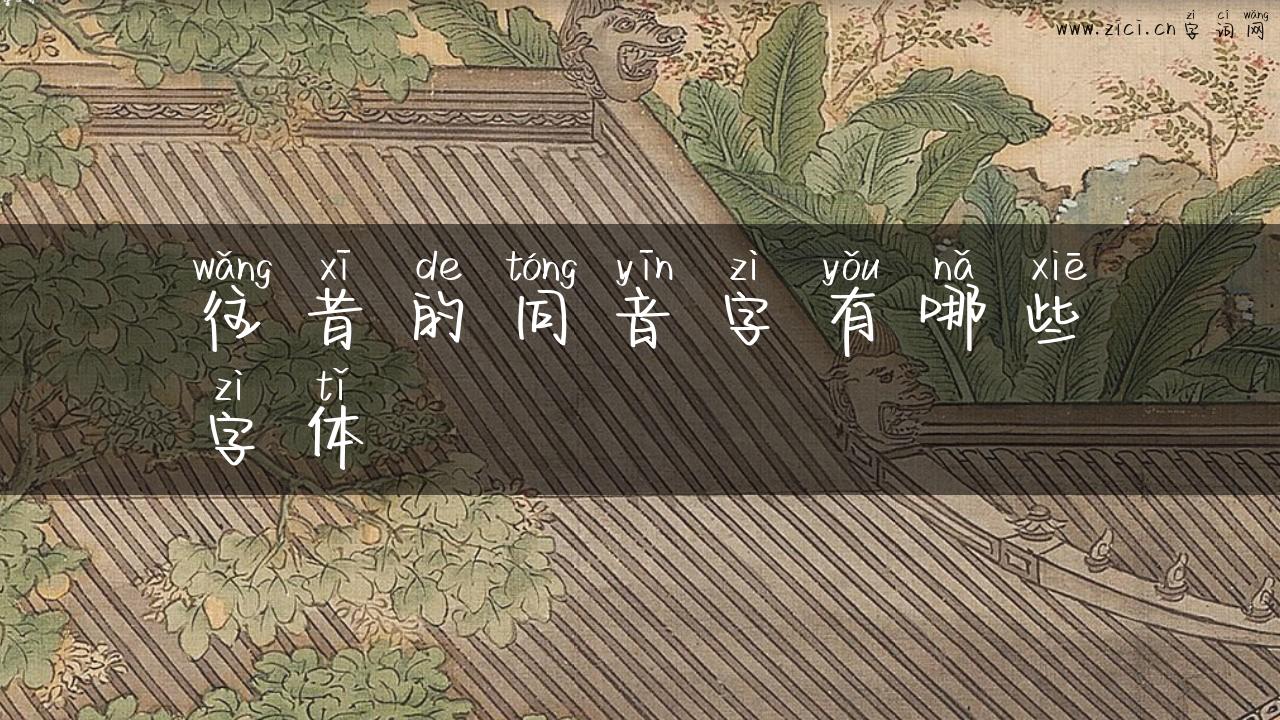 www.zici.cn 字词网
zì cí wǎng
wǎng xī de tóng yīn zì yǒu nǎ xiē
往昔的同音字有哪些
zì tǐ
字体